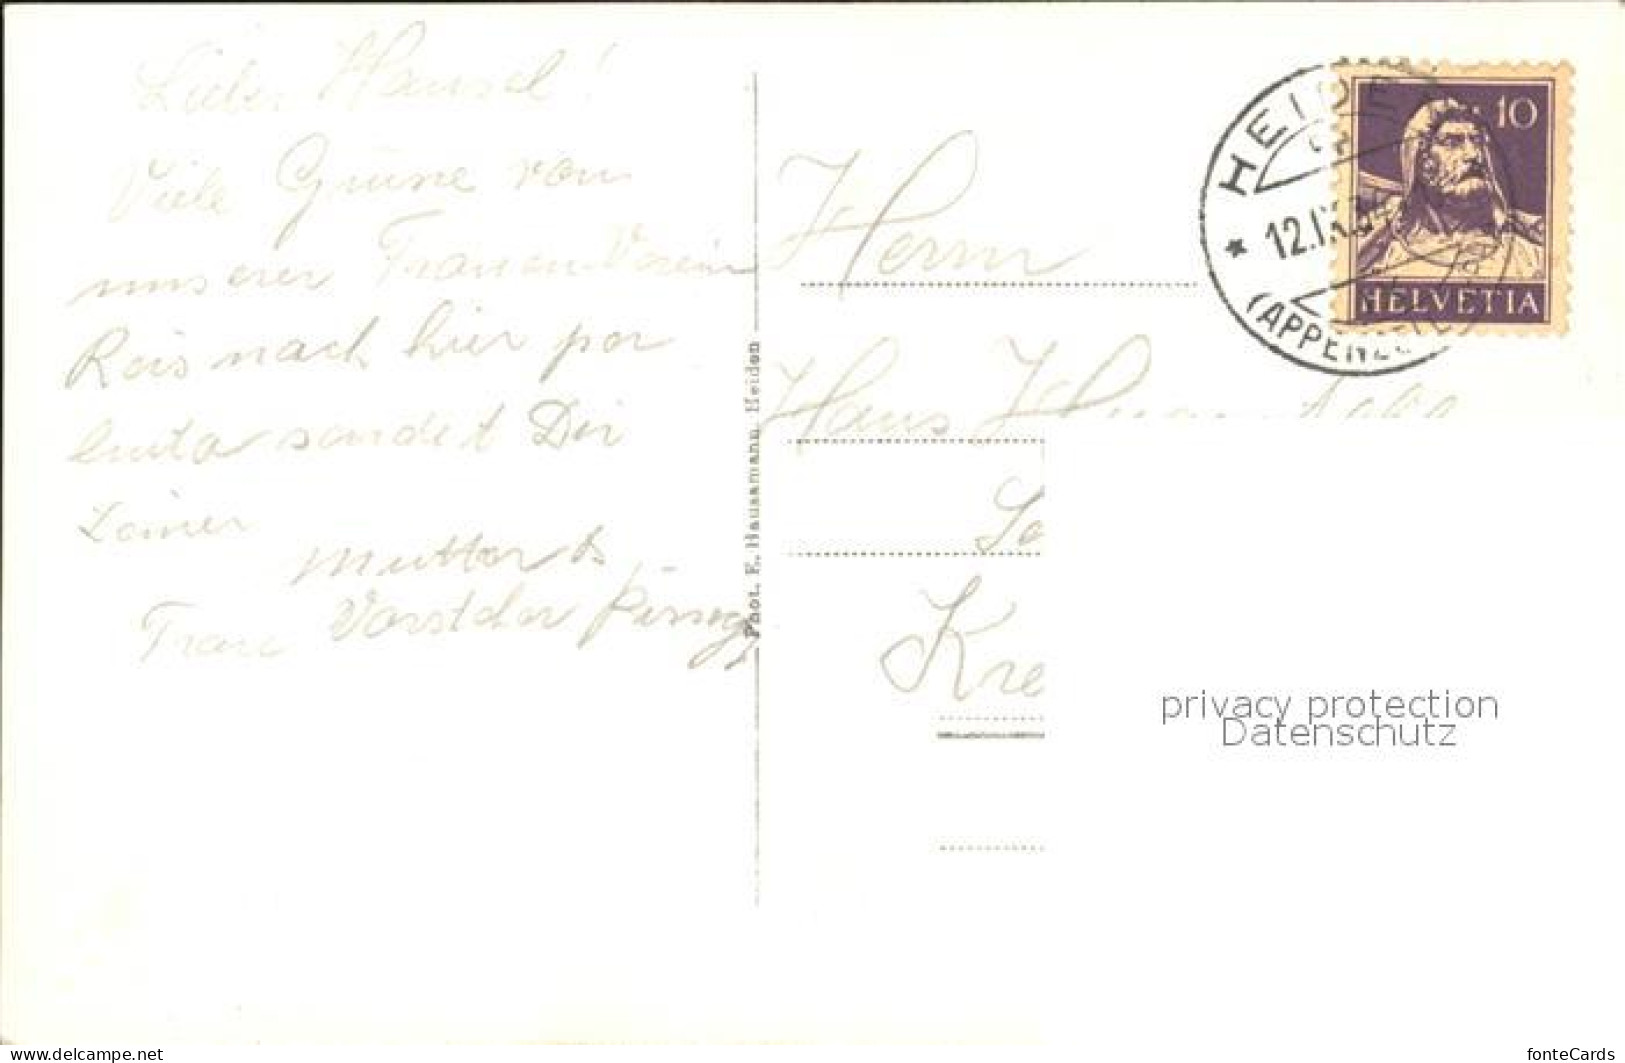 Lieber Hansel!
Viele Grüsse von
unserer Frauen Verein
Reis nach hier per
Auto sendet Dir
Deiner
Mutter &
Frau Vorsteher
Phot. E. Hausamann Heiden
Herrn
Hans
Kre
HEIDEN
12.IX.
(APPENZELL)
10
HELVETIA
privacy protection
Datenschutz
www.ansichtskarten-center.de
fonteCards